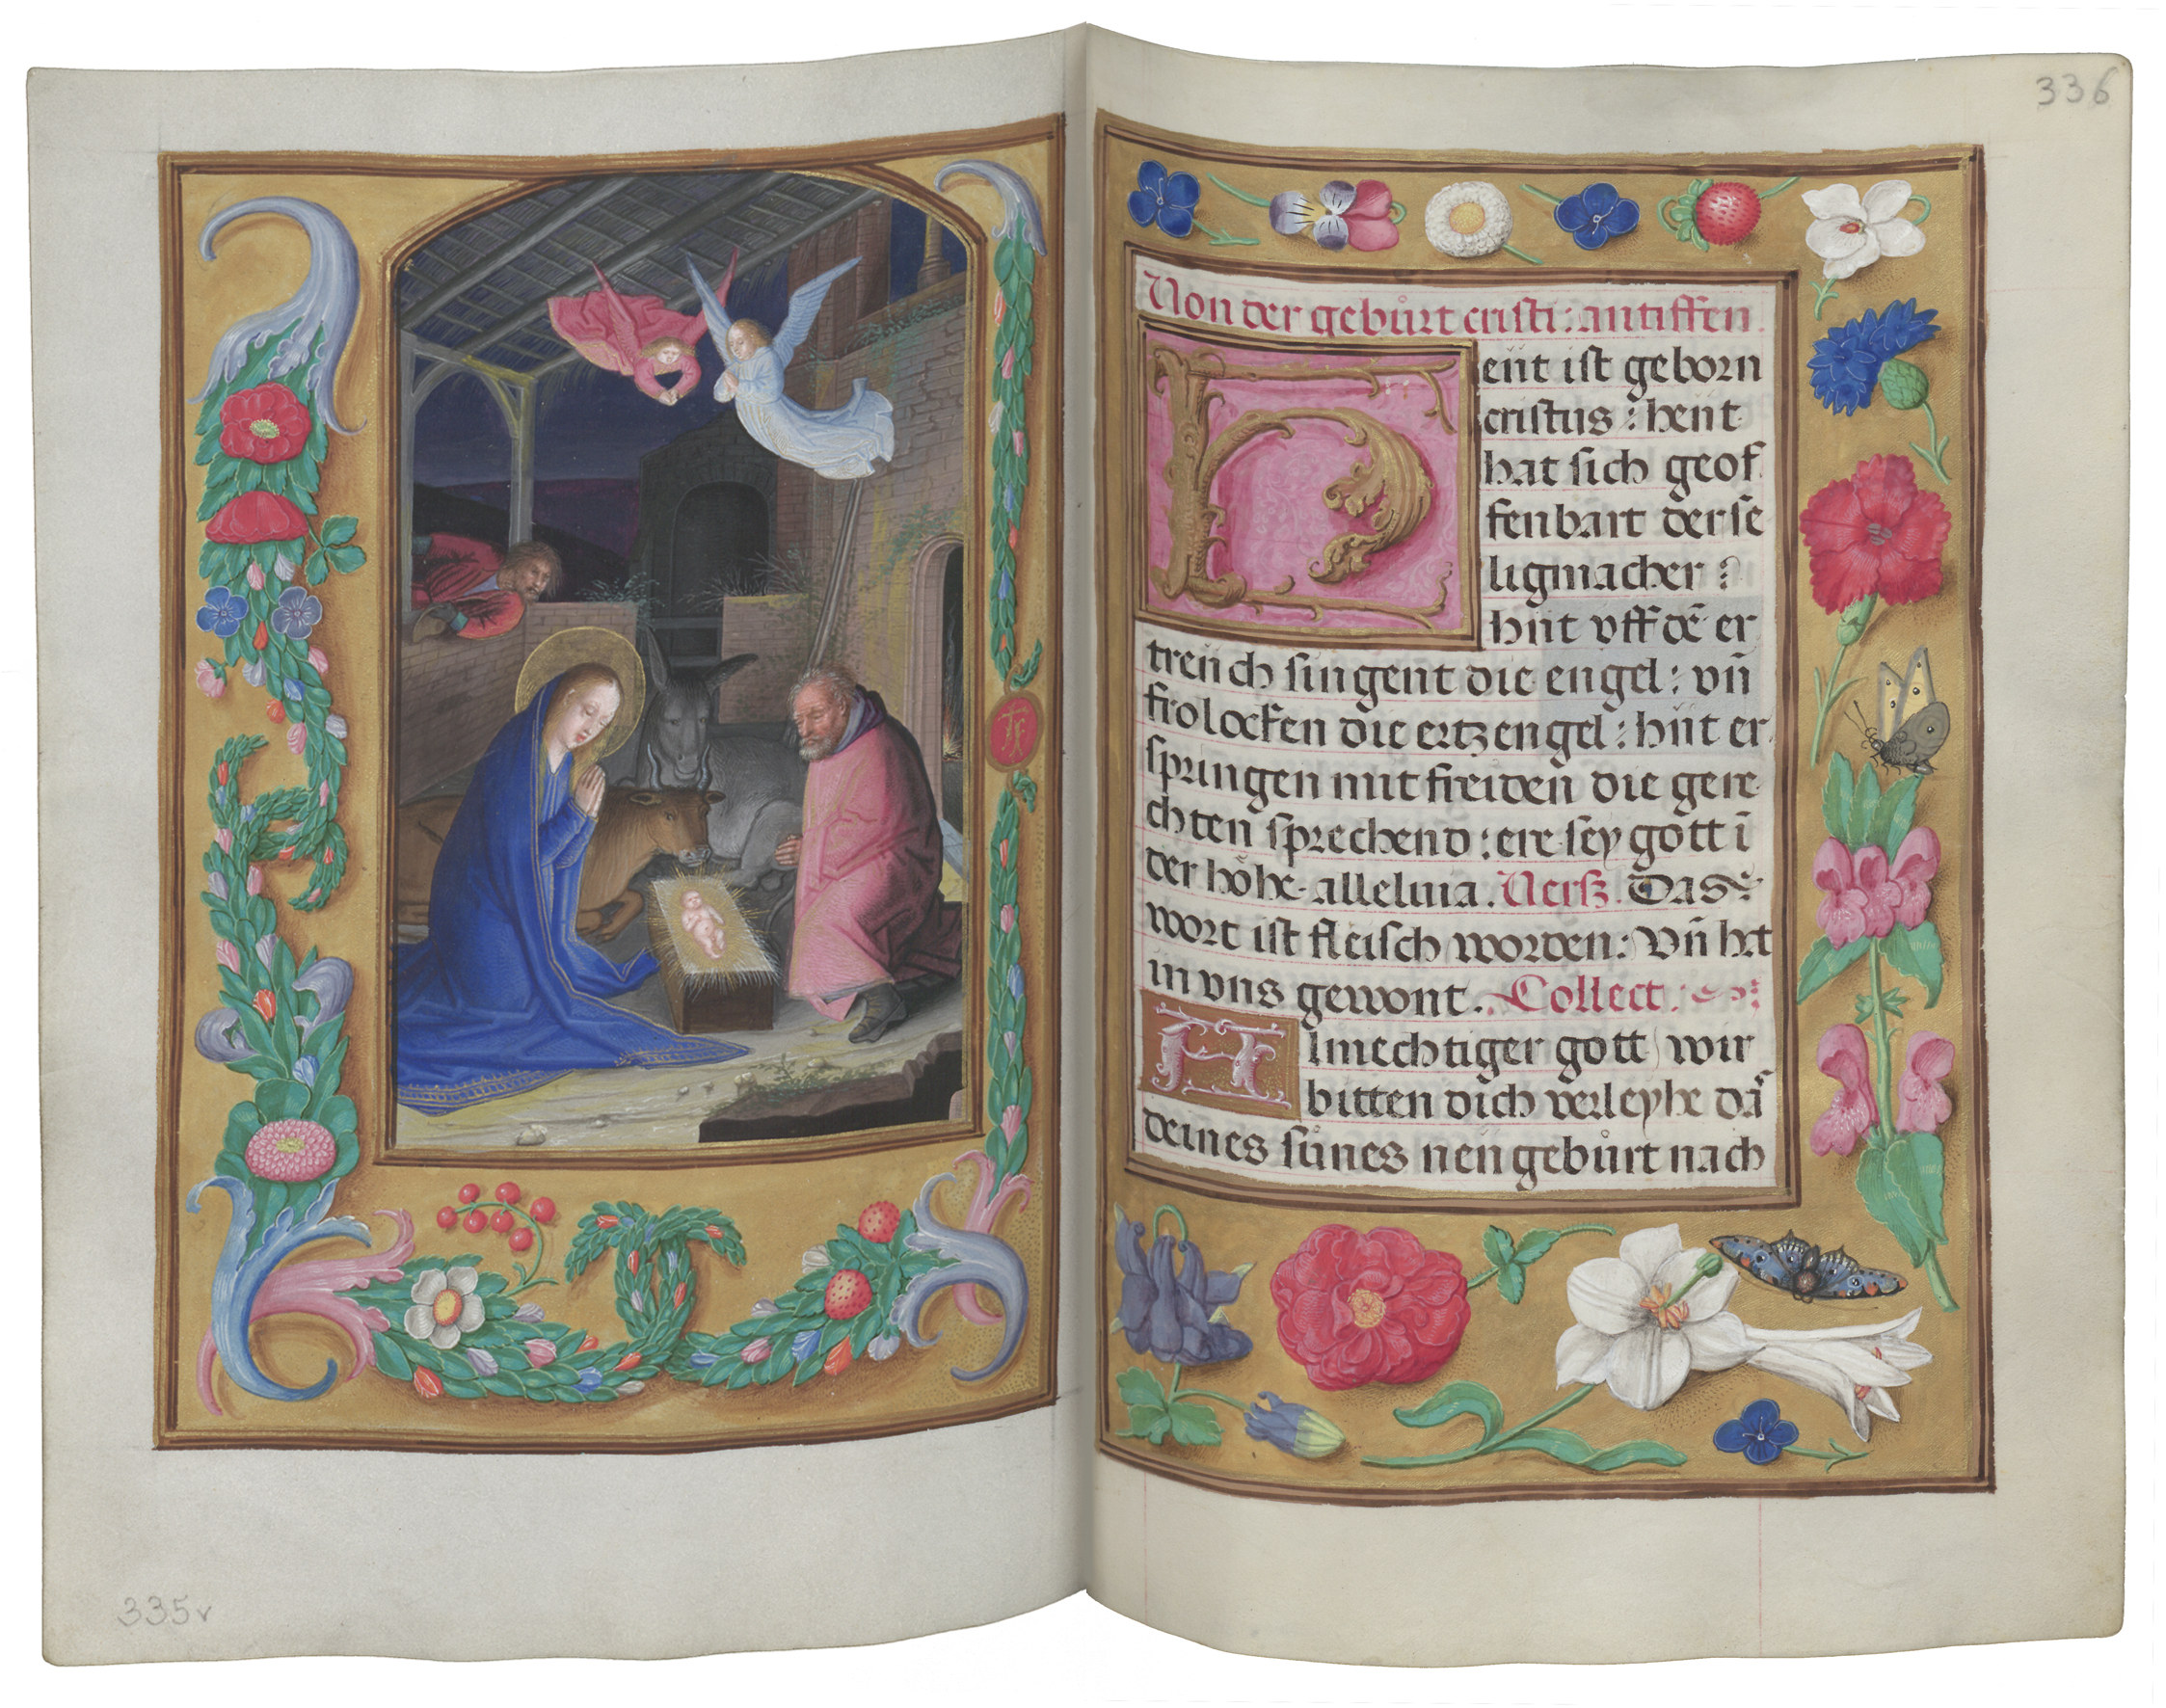 335v
336
Von der gebůrt cristi : antiffen.
Heüt ist geborn
cristus : heüt
hat sich geof
fenbart der se
ligmacher :
hüt vff dē er
treüch singent die engel : vn̄
frolocken die ertzengel : hüt er
springen mit freiden die gere
chten sprechend : ere sey gott ī
der höhe. alleluia. Versz. Das
wort ist fleisch worden : Vn̄ hat
in vns gewont. Collect.
Almechtiger gott wir
bitten dich verleyhe dā
deines sůnes neü gebůrt nach